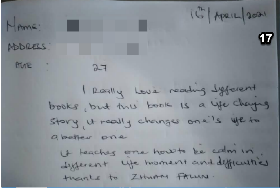 16th / APRIL / 2021
NAME:
17
ADDRESS:
AGE : 27
I Really Love reading different
books, but this book is a life changing
story, it really changes one's life to
another one.
it teaches one how to be calm in
different life moment and difficulties
thanks to ZHUAN FALUN.